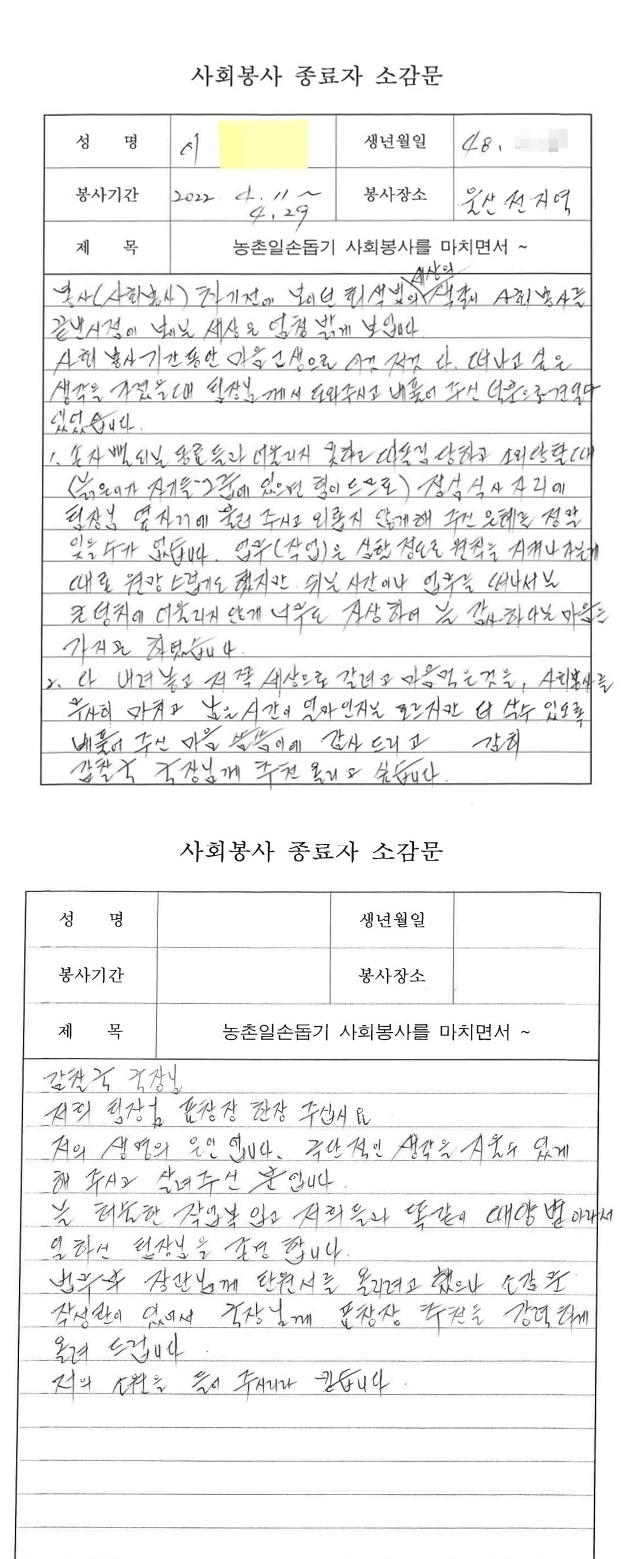 사회봉사 종료자 소감문
성 명 서 생년월일 48.
봉사기간 2022. 4. 11 ~ 4. 29 봉사장소 울산 전지역
제 목 농촌일손돕기 사회봉사를 마치면서 ~
봉사(사회봉사) 하기전에 보이던 회색빛의 세상의 색종이 사회봉사를
끝낸시점에 보이는 세상은 엄청 밝게 보입니다.
사회 봉사 기간동안 마음고생으로 이것 저것 다. 떠나고 싶은
생각을 가졌을때 팀장님께서 도와주시고 베풀어 주신 덕분으로 견딜수
있었습니다.
1. 손자 뻘되는 동료들과 어울리지 못하고 따돌림 당하고 소외당할때
(늙은이가 자기들 그룹에 있으면 힘이드므로) 점심식사 자리에
팀장님 옆자기에 불러 주시고 외롭지 않게해 주신 은혜를 정말
잊을수가 없습니다. 업무(작업)은 심할 정도로 원칙을 지켜나가는게
때론 원망스럽기도 했지만 쉬는 시간이나 업무를 떠나서는
큰 덩치에 어울리지 않게 너무도 자상하여 늘 감사하다는 마음을
가지고 하였습니다.
2. 다 내려놓고 저쪽 세상으로 갈려고 마음먹은것을, 사회봉사를
무사히 마치고 남은시간이 얼마인지는 모르지만 더 살수 있도록
베풀어 주신 마음 씀씀이에 감사 드리고 감히
감찰국 국장님께 추천 올리고 싶습니다.
사회봉사 종료자 소감문
성 명 생년월일
봉사기간 봉사장소
제 목 농촌일손돕기 사회봉사를 마치면서 ~
감찰국 국장님
저희 팀장님 표창장 한장 주십시요
저의 생명의 은인 입니다. 극단적인 생각을 지울수 있게
해 주시고 살려주신 분입니다.
늘 허름한 작업복 입고 저희들과 똑같이 때양볕 아래서
일하신 팀장님을 존경 합니다.
법무부 장관님께 탄원서를 올리려고 했으나 소감문
작성란이 있어서 국장님께 표창장 추천을 강력하게
올려 드립니다.
저의 소원을 들어 주시리라 믿습니다.